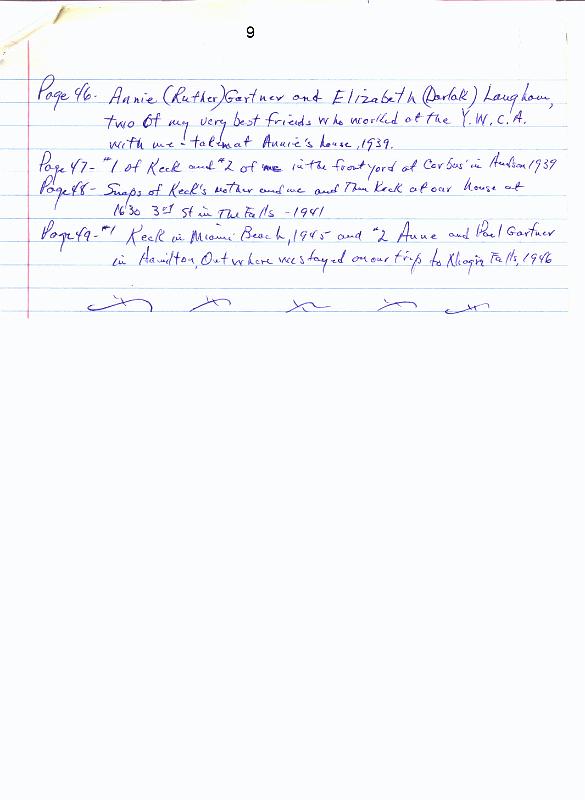 9
Page 46- Annie (Ruther) Gartner and Elizabeth (Darlak) Langham,
two of my very best friends who worked at the Y.W.C.A.
with me - taken at Annie's house, 1939.
Page 47- #1 of Keck and #2 of me in the front yard at Corbus' in Hudson 1939
Page 48- Snaps of Keck's mother and me and then Keck at our house at
1630 3rd St in The Falls - 1941
Page 49- #1 Keck in Miami Beach, 1945 and #2 Anne and Paul Gartner
in Hamilton, Ont where we stayed on our trip to Niagra Falls, 1946